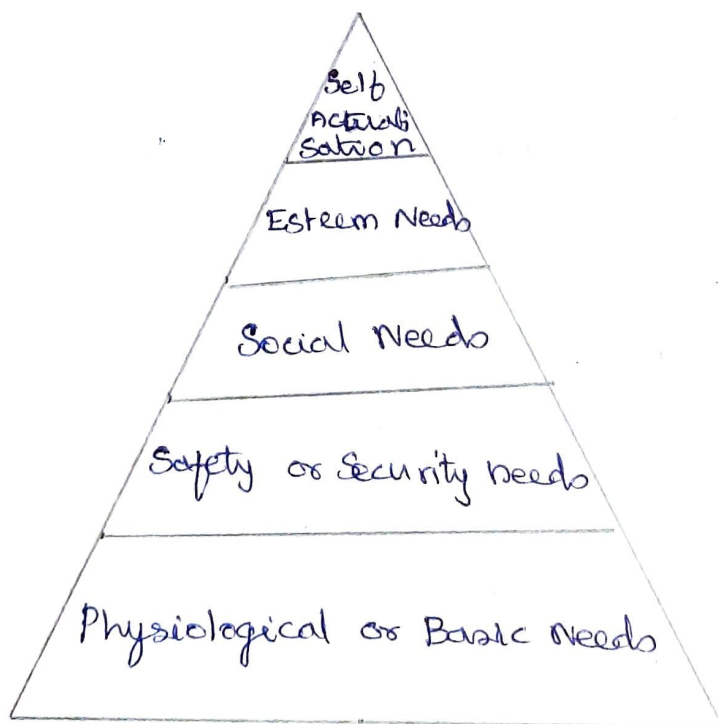 Self
Actuali
sation
Esteem Needs
Social Needs
Safety or Security needs
Physiological or Basic Needs